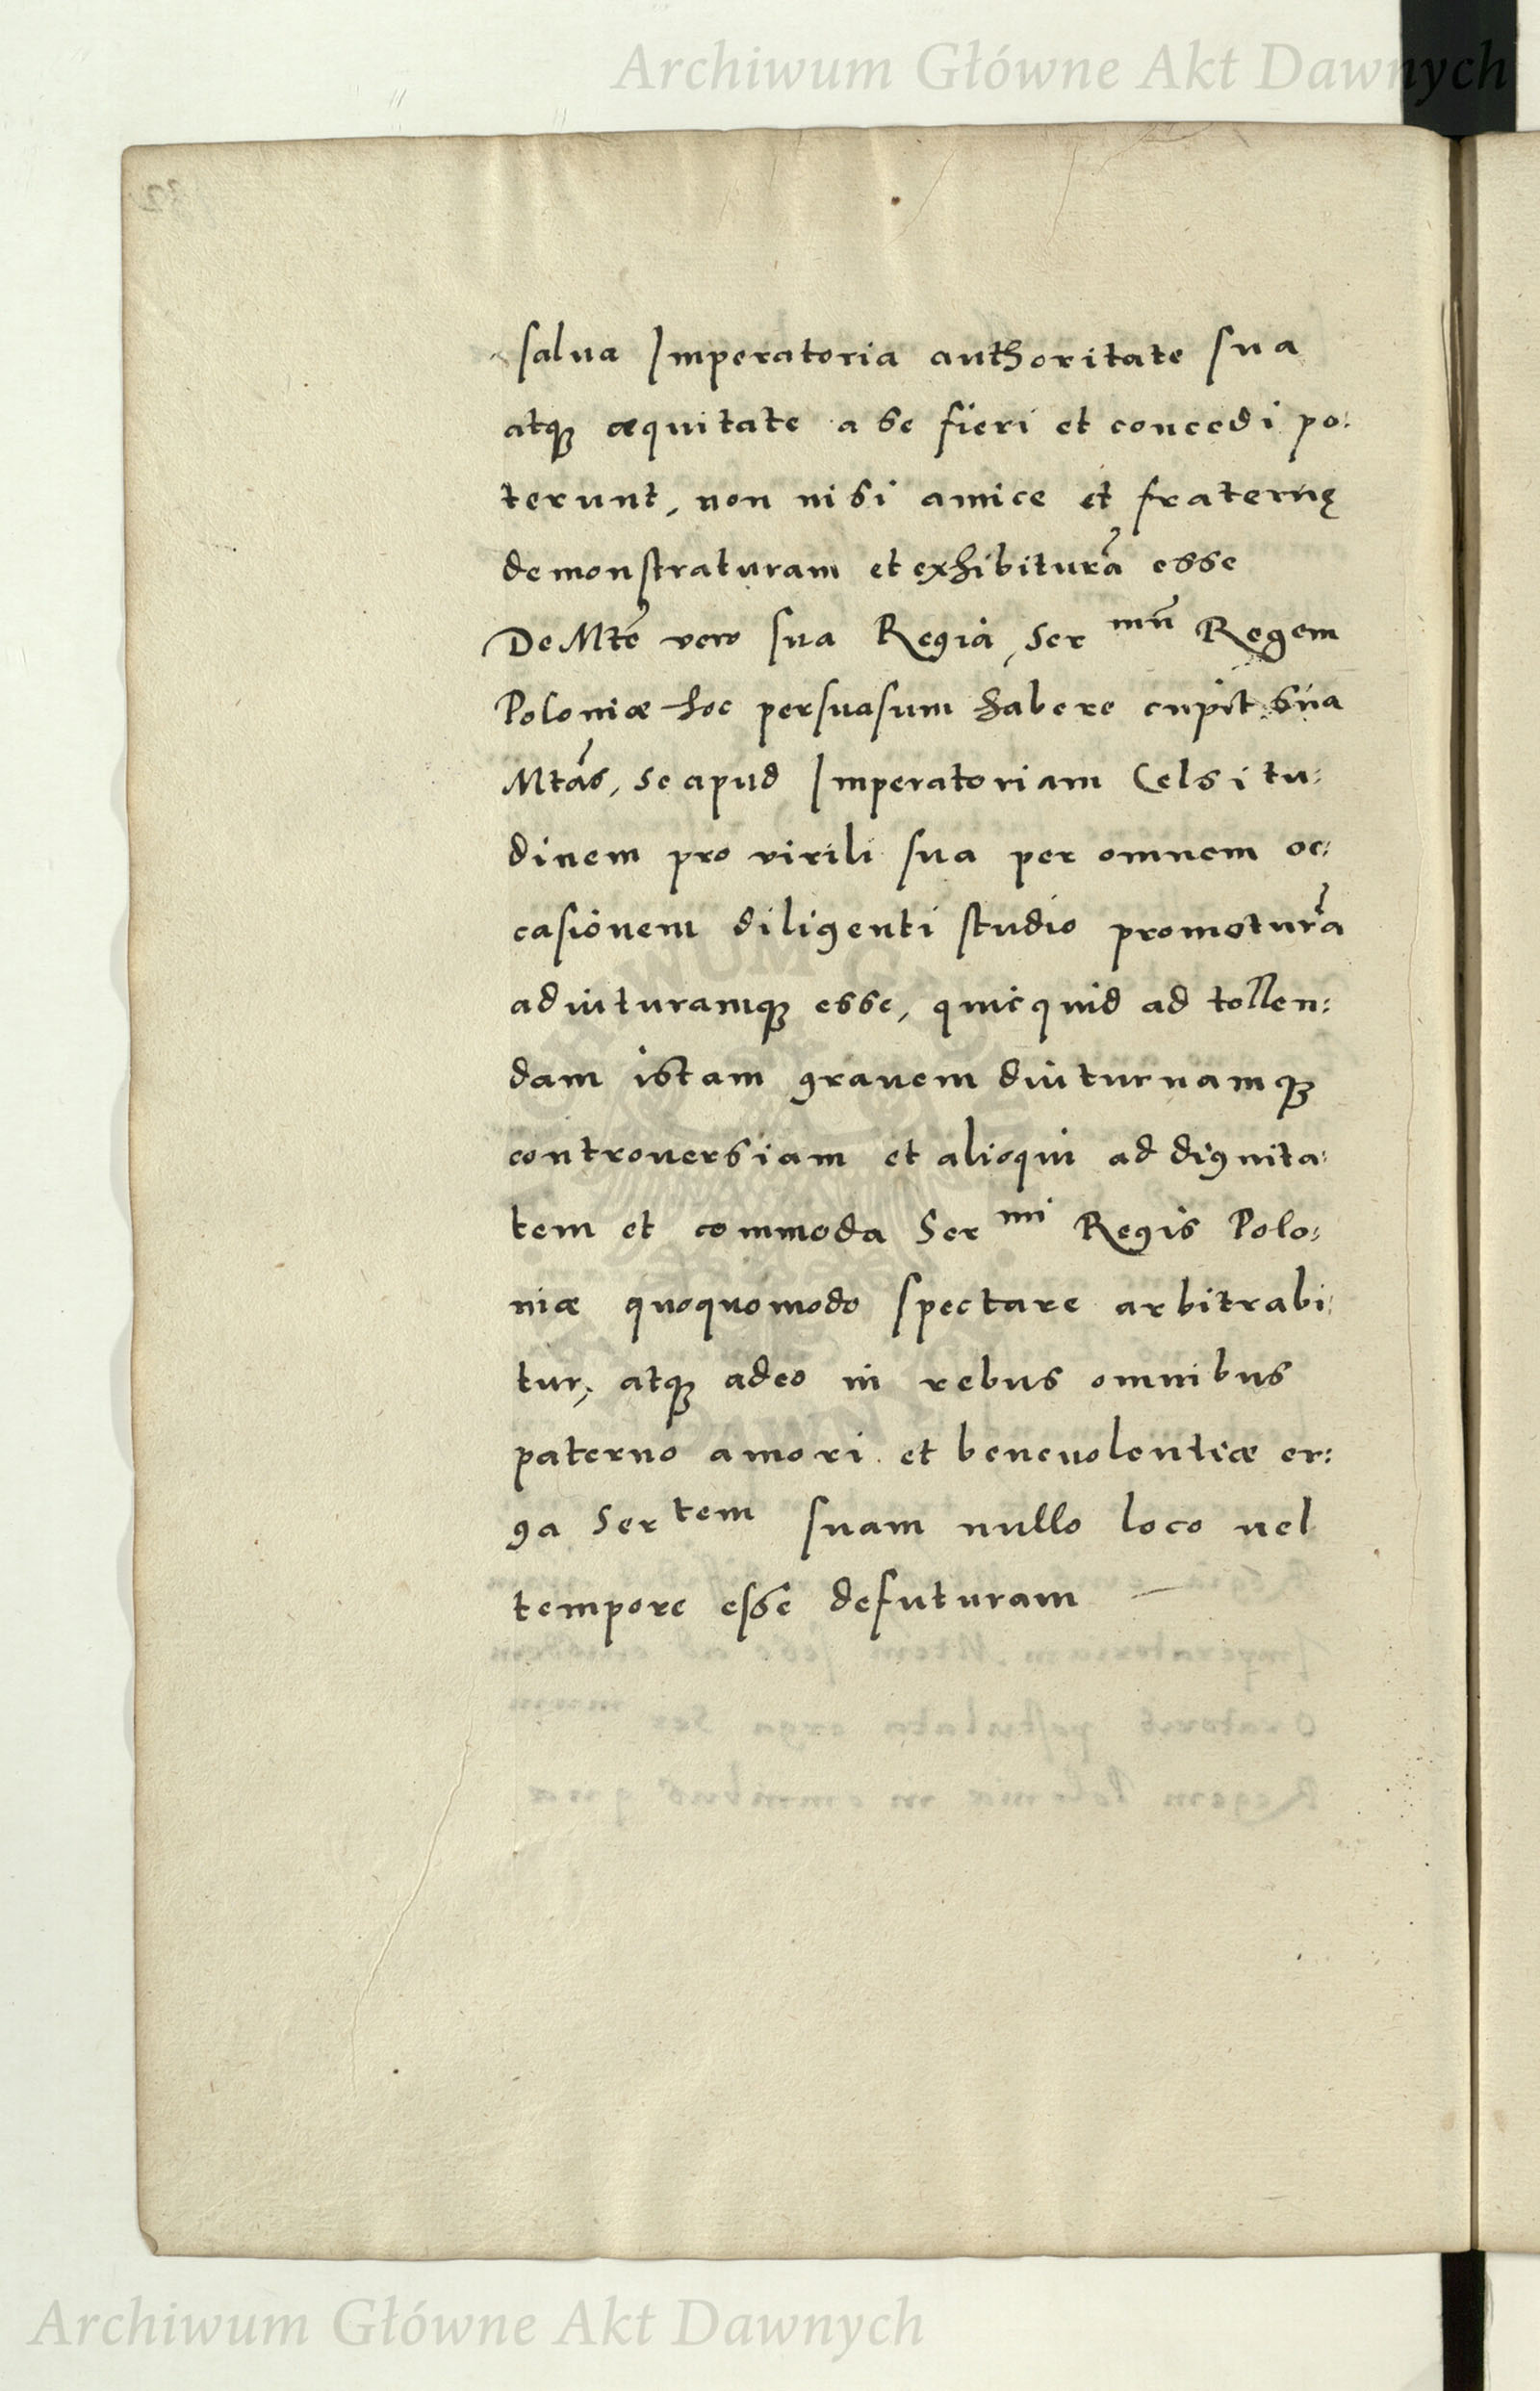 Archiwum Główne Akt Dawnych
salua Imperatoria authoritate sua
atqꝫ æquitate a se fieri et concedi po:
terunt, non nisi amice et fraternę
demonstraturam et exhibiturã esse
De Mtẽ vero sua Regia, Ser mũ Regem
Poloniæ hoc persuasum habere cupit sua
Mtãs, se apud Imperatoriam Celsitu:
dinem pro virili sua per omnem oc:
casionem diligenti studio promoturã
adiuturamqꝫ esse, quicquid ad tollen:
dam istam grauem diuturnamqꝫ
controuersiam et alioqui ad dignita:
tem et commoda Ser mi Regis Polo:
niæ quoquomodo spectare arbitrabi:
tur, atqꝫ adeo in rebus omnibus
paterno amori et beneuolentiæ er:
ga Ser tem suam nullo loco uel
tempore esse defuturam
Archiwum Główne Akt Dawnych